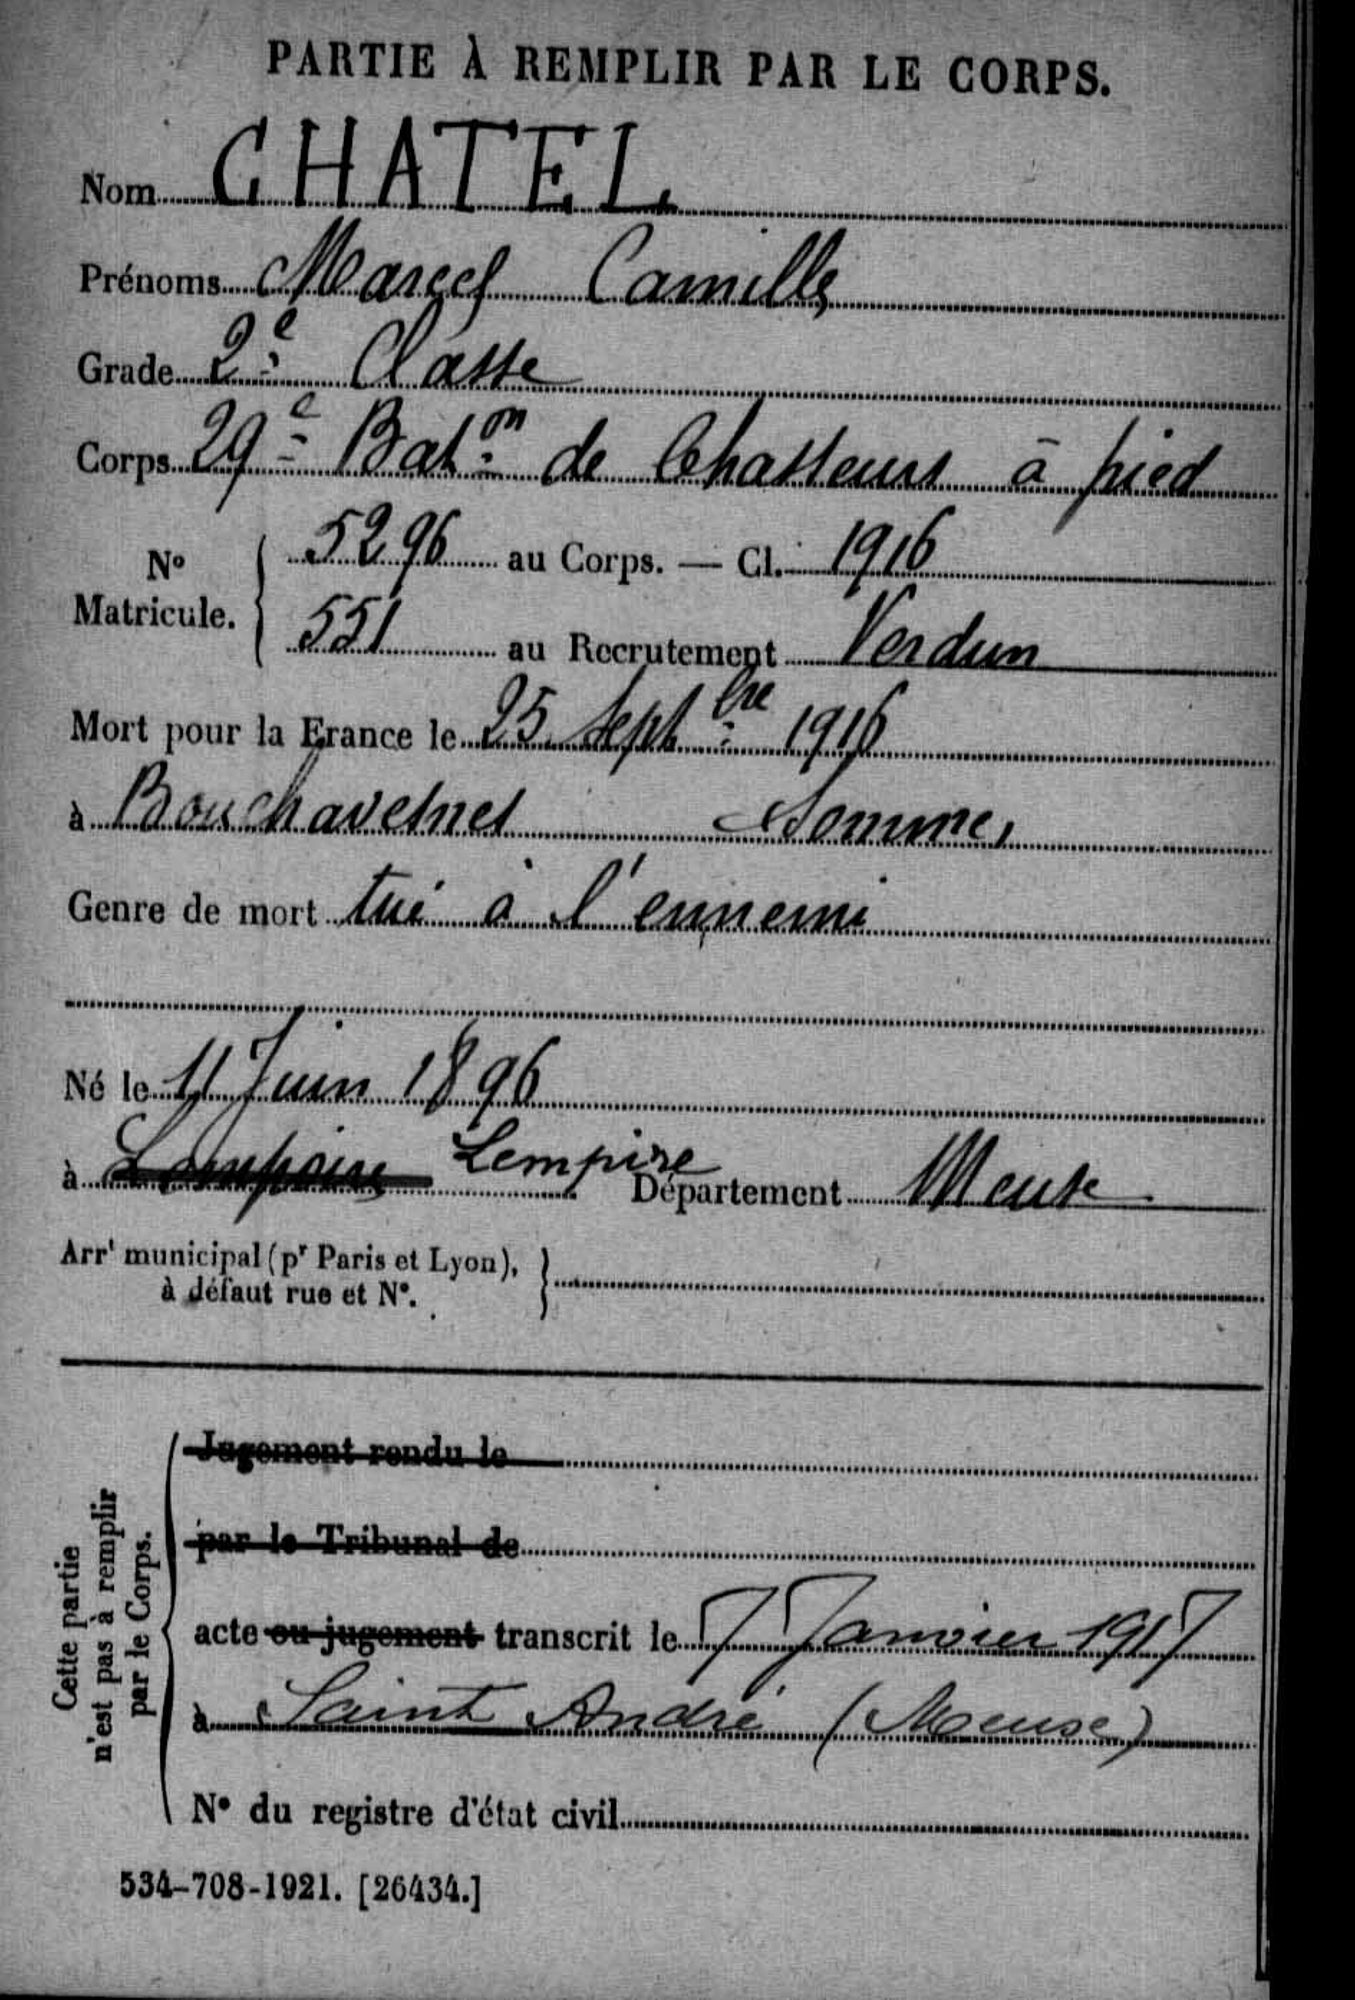 PARTIE À REMPLIR PAR LE CORPS.
Nom CHATEL
Prénoms Marcel Camille
Grade 2e Classe
Corps 29e Bat.on de Chasseurs à pied
No Matricule. { 5296 au Corps. — Cl. 1916
551 au Recrutement Verdun
Mort pour la France le 25 Septbre 1916
à Bouchavesnes Somme,
Genre de mort tué à l'ennemi
Né le 11 Juin 1896
à Lempire Département Meuse
Arrt municipal (pr Paris et Lyon), à défaut rue et No. }
Cette partie n'est pas à remplir par le Corps.
Jugement rendu le
par le Tribunal de
acte ou jugement transcrit le 7 Janvier 1917
à Saint André (Meuse)
No du registre d'état civil
534-708-1921. [26434.]